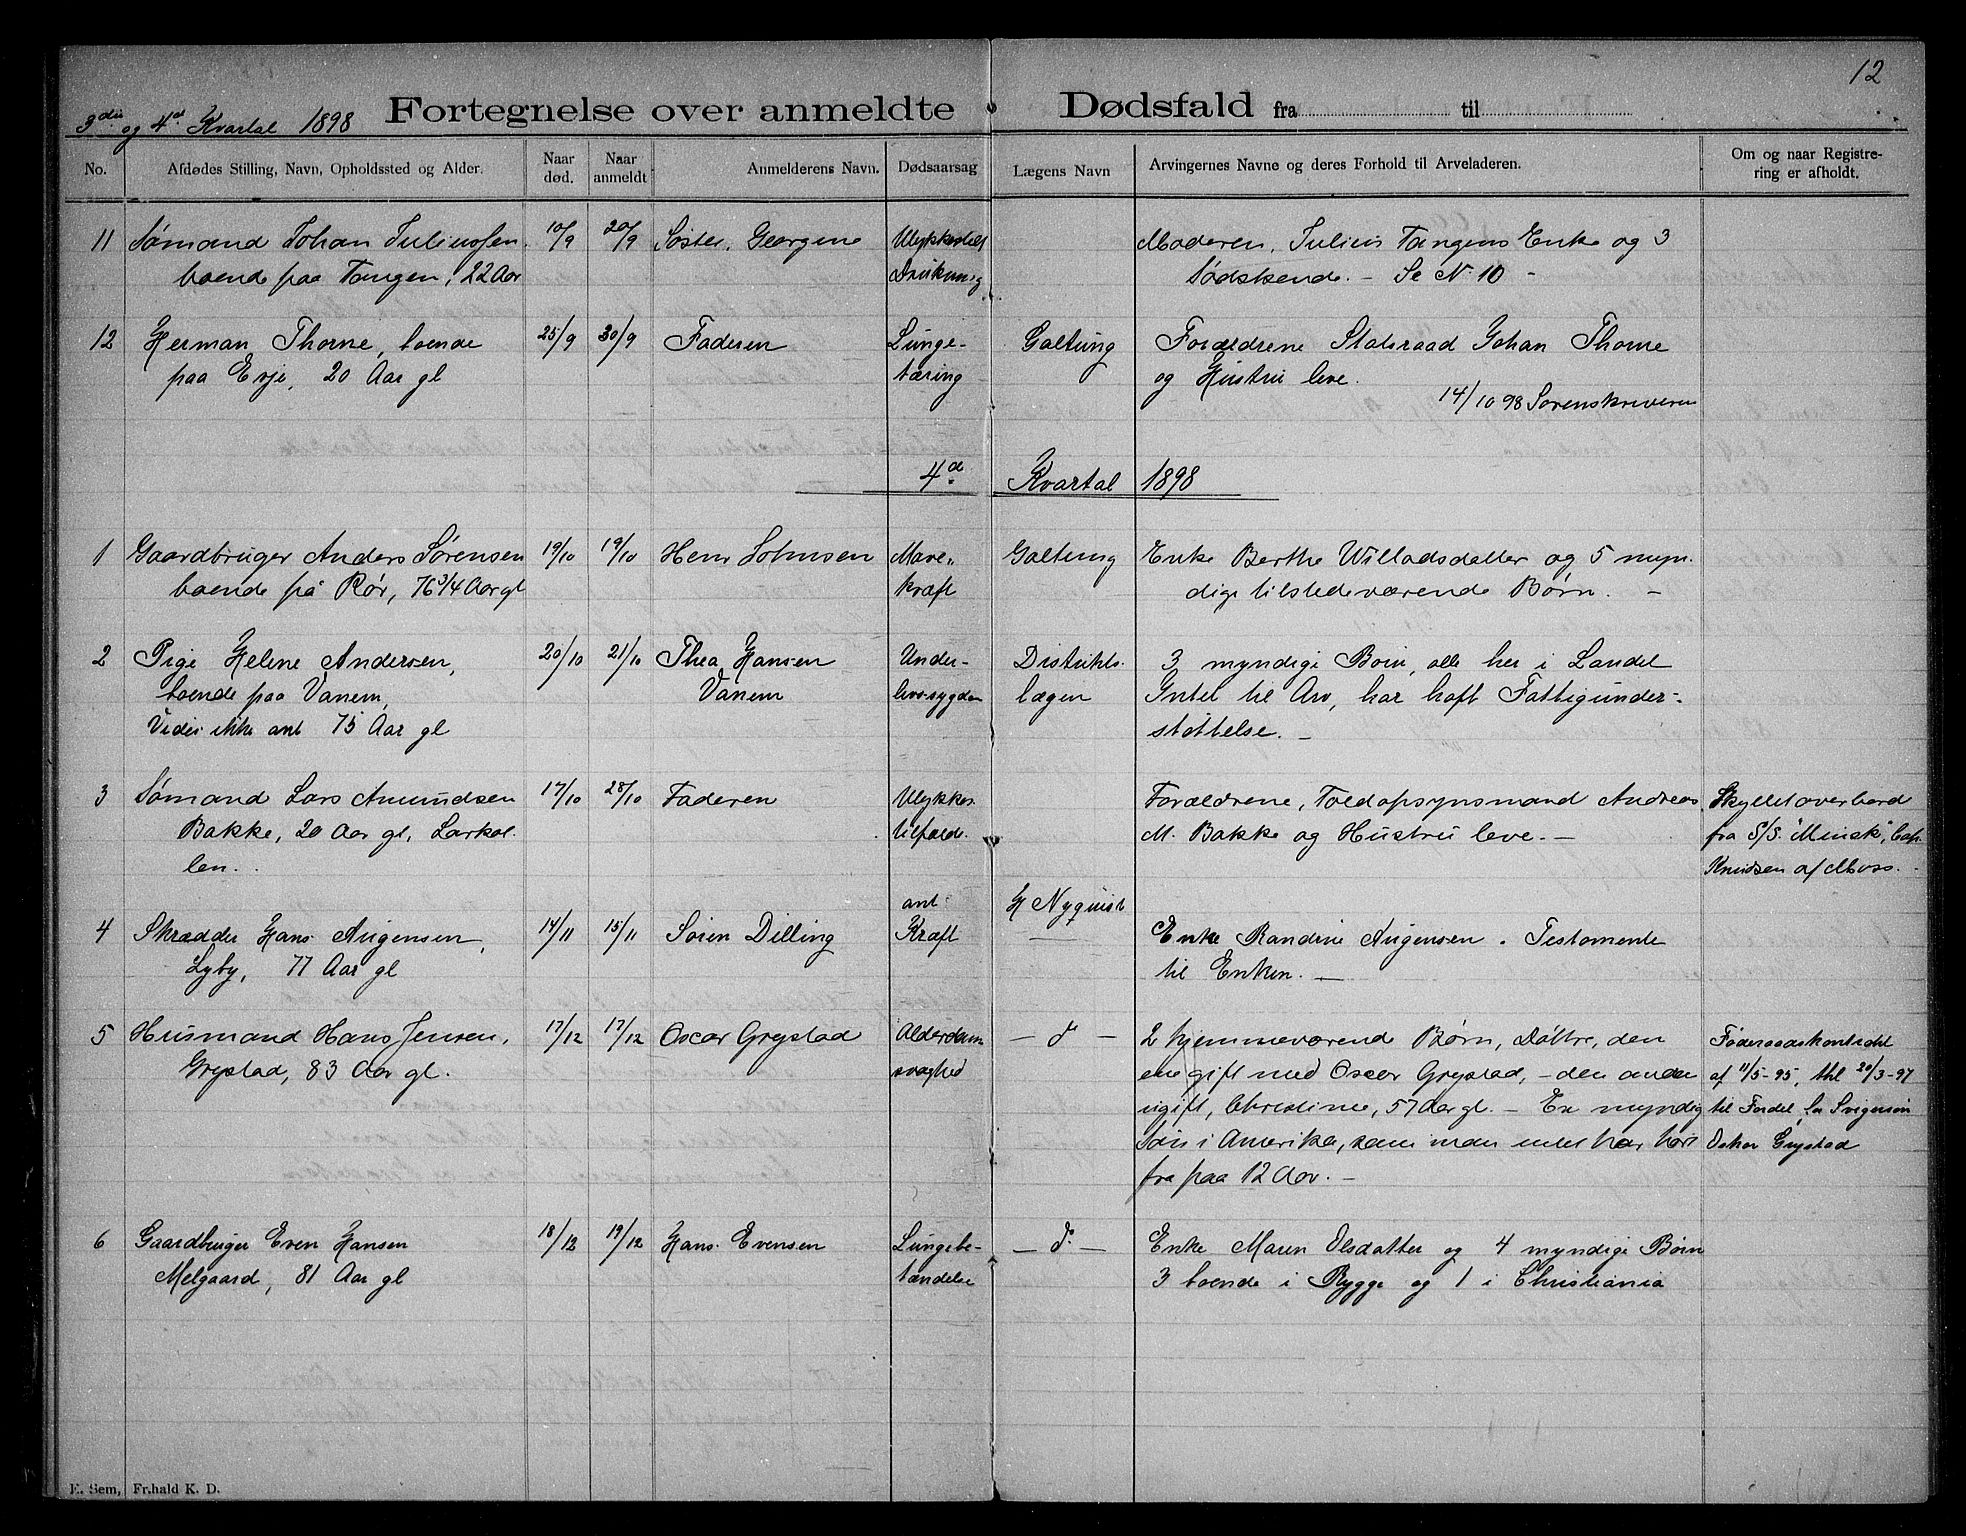 12
3die og 4d Kvartal 1898 Fortegnelse over anmeldte Dødsfald fra til
No. Afdødes Stilling, Navn, Opholdssted og Alder. Naar død. Naar anmeldt Anmelderens Navn. Dødsaarsag Lægens Navn Arvingernes Navne og deres Forhold til Arveladeren. Om og naar Registrering er afholdt.
11 Sømand Johan Juliussen 10/9 20/9 Søster, Georgine Ulykkestilf Moderen, Julius Tangens Enke og 3
boende paa Tangen, 22 Aar Drukning Sødskende. – Se N. 10 –
12 Herman Thorne, boende 25/9 30/9 Faderen Lunge- Galtung Forældrene Statsraad Johan Thorne
paa Evje, 20 Aar gl tæring og Hustru leve.
14/10 98 Sorenskriveren
4d Kvartal 1898
1 Gaardbruger Anders Sørensen 19/10 19/10 Henr Johnsen Mave- Galtung Enke Berthe Willadsdatter og 5 myn-
boende på Rør, 76 3/4 Aar gl kræft dige tilstedeværende Børn. –
2 Pige Helene Andersen, 20/10 21/10 Thea Hansen Under- Distrikts- 3 myndige Børn, alle her i Landet
boende paa Vanem, Vanem livssygdom lægen Intet til Arv, har haft Fattigunder-
Vides ikke ant 75 Aar gl støttelse. –
3 Sømand Lars Amundsen 17/10 28/10 Faderen Ulykkes Forældrene, Toldopsynsmand Andreas Skyllet overbord
Bakke, 20 Aar gl, Larkol- tilfælde. M. Bakke og Hustru leve. – fra S/S. "Minsk", Cap.
len. Knudsen af Moss. –
4 Skrædder Hans Augensen, 14/11 15/11 Søren Dilling ant Kræft H Nyquist Enke Randine Augensen. Testamente
Lyby, 77 Aar gl til Enken. –
5 Husmand Hans Jensen, 17/12 17/12 Oscar Grystad Alderdoms – d – 2 hjemmeværend Børn, Døttre, den Føderaadskontrakt
Grystad, 83 Aar gl. svaghed ene gift med Oscar Grystad, – den anden af 11/5-95, thl 20/3-97
ugift, Christine, 57 Aar gl. – En myndig til Fordel for Svigersøn
Søn i Amerika, som man intet har hørt Oskar Grystad
fra paa 12 Aar. –
6 Gaardbruger Even Hansen 18/12 19/12 Hans Evensen Lungebe- – d. – Enke Maren Olsdatter og 4 myndige Børn
Melgaard, 81 Aar gl tændelse 3 boende i Rygge og 1 i Christiania
E. Sem, Fr.hald K. D.